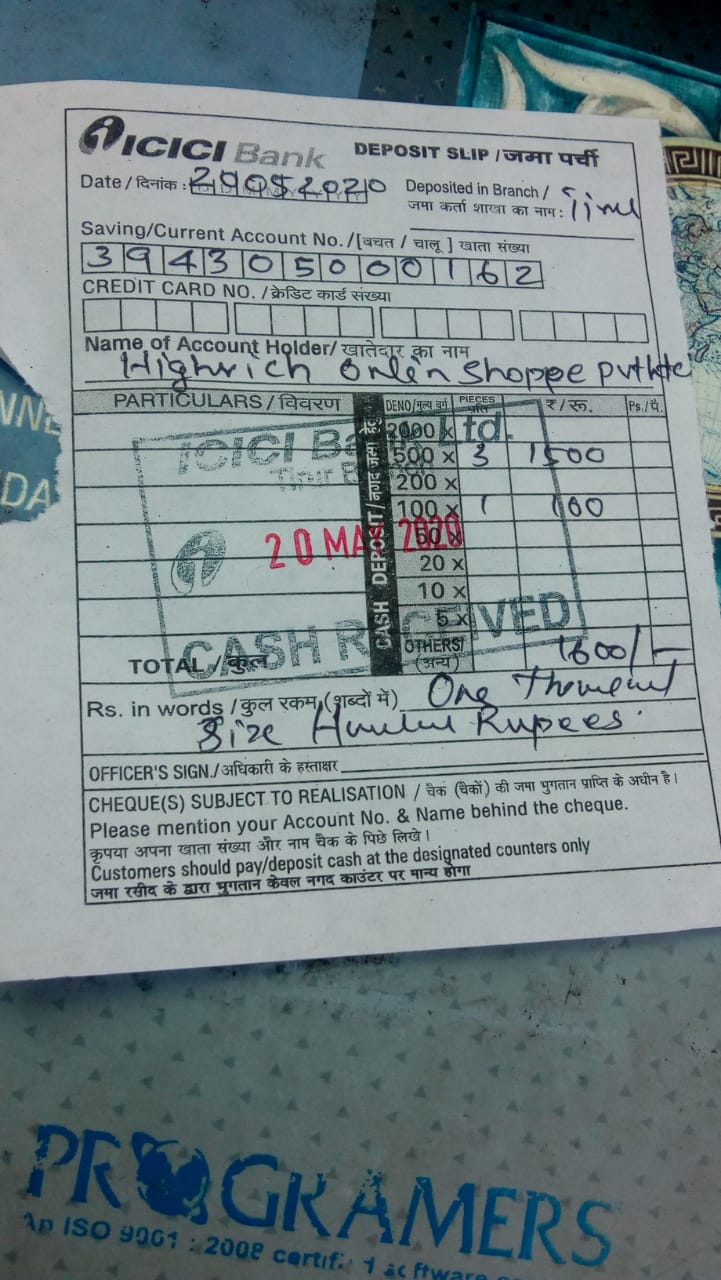 ICICI Bank DEPOSIT SLIP / जमा पर्ची
Date / दिनांक : 20052020 Deposited in Branch /
जमा कर्ता शाखा का नाम :
Saving/Current Account No. / [बचत / चालू ] खाता संख्या
394305000162
CREDIT CARD NO. / क्रेडिट कार्ड संख्या
Name of Account Holder/ खातेदार का नाम
Highrich Onlin Shoppe pvt
PARTICULARS / विवरण DENO/मूल्य वर्ग PIECES ₹ / रू. Ps./पै.
CASH DEPOSIT / नगद जमा हेतु
2000 x
500 x 3 1500
200 x
100 x 1 100
50 x
20 x
10 x
5 x
OTHERS/
(अन्य)
TOTAL / कुल 1600/-
ICICI Bank Ltd.
20 MAY 2020
CASH RECEIVED
Rs. in words / कुल रकम (शब्दों में) One
Rupees
OFFICER'S SIGN./अधिकारी के हस्ताक्षर
CHEQUE(S) SUBJECT TO REALISATION / चैक (चैकों) की जमा भुगतान प्राप्ति के अधीन है।
Please mention your Account No. & Name behind the cheque.
कृपया अपना खाता संख्या और नाम चैक के पिछे लिखे।
Customers should pay/deposit cash at the designated counters only
जमा रसीद के द्वारा भुगतान केवल नगद काउंटर पर मान्य होगा
PROGRAMERS
An ISO 9001 : 2008